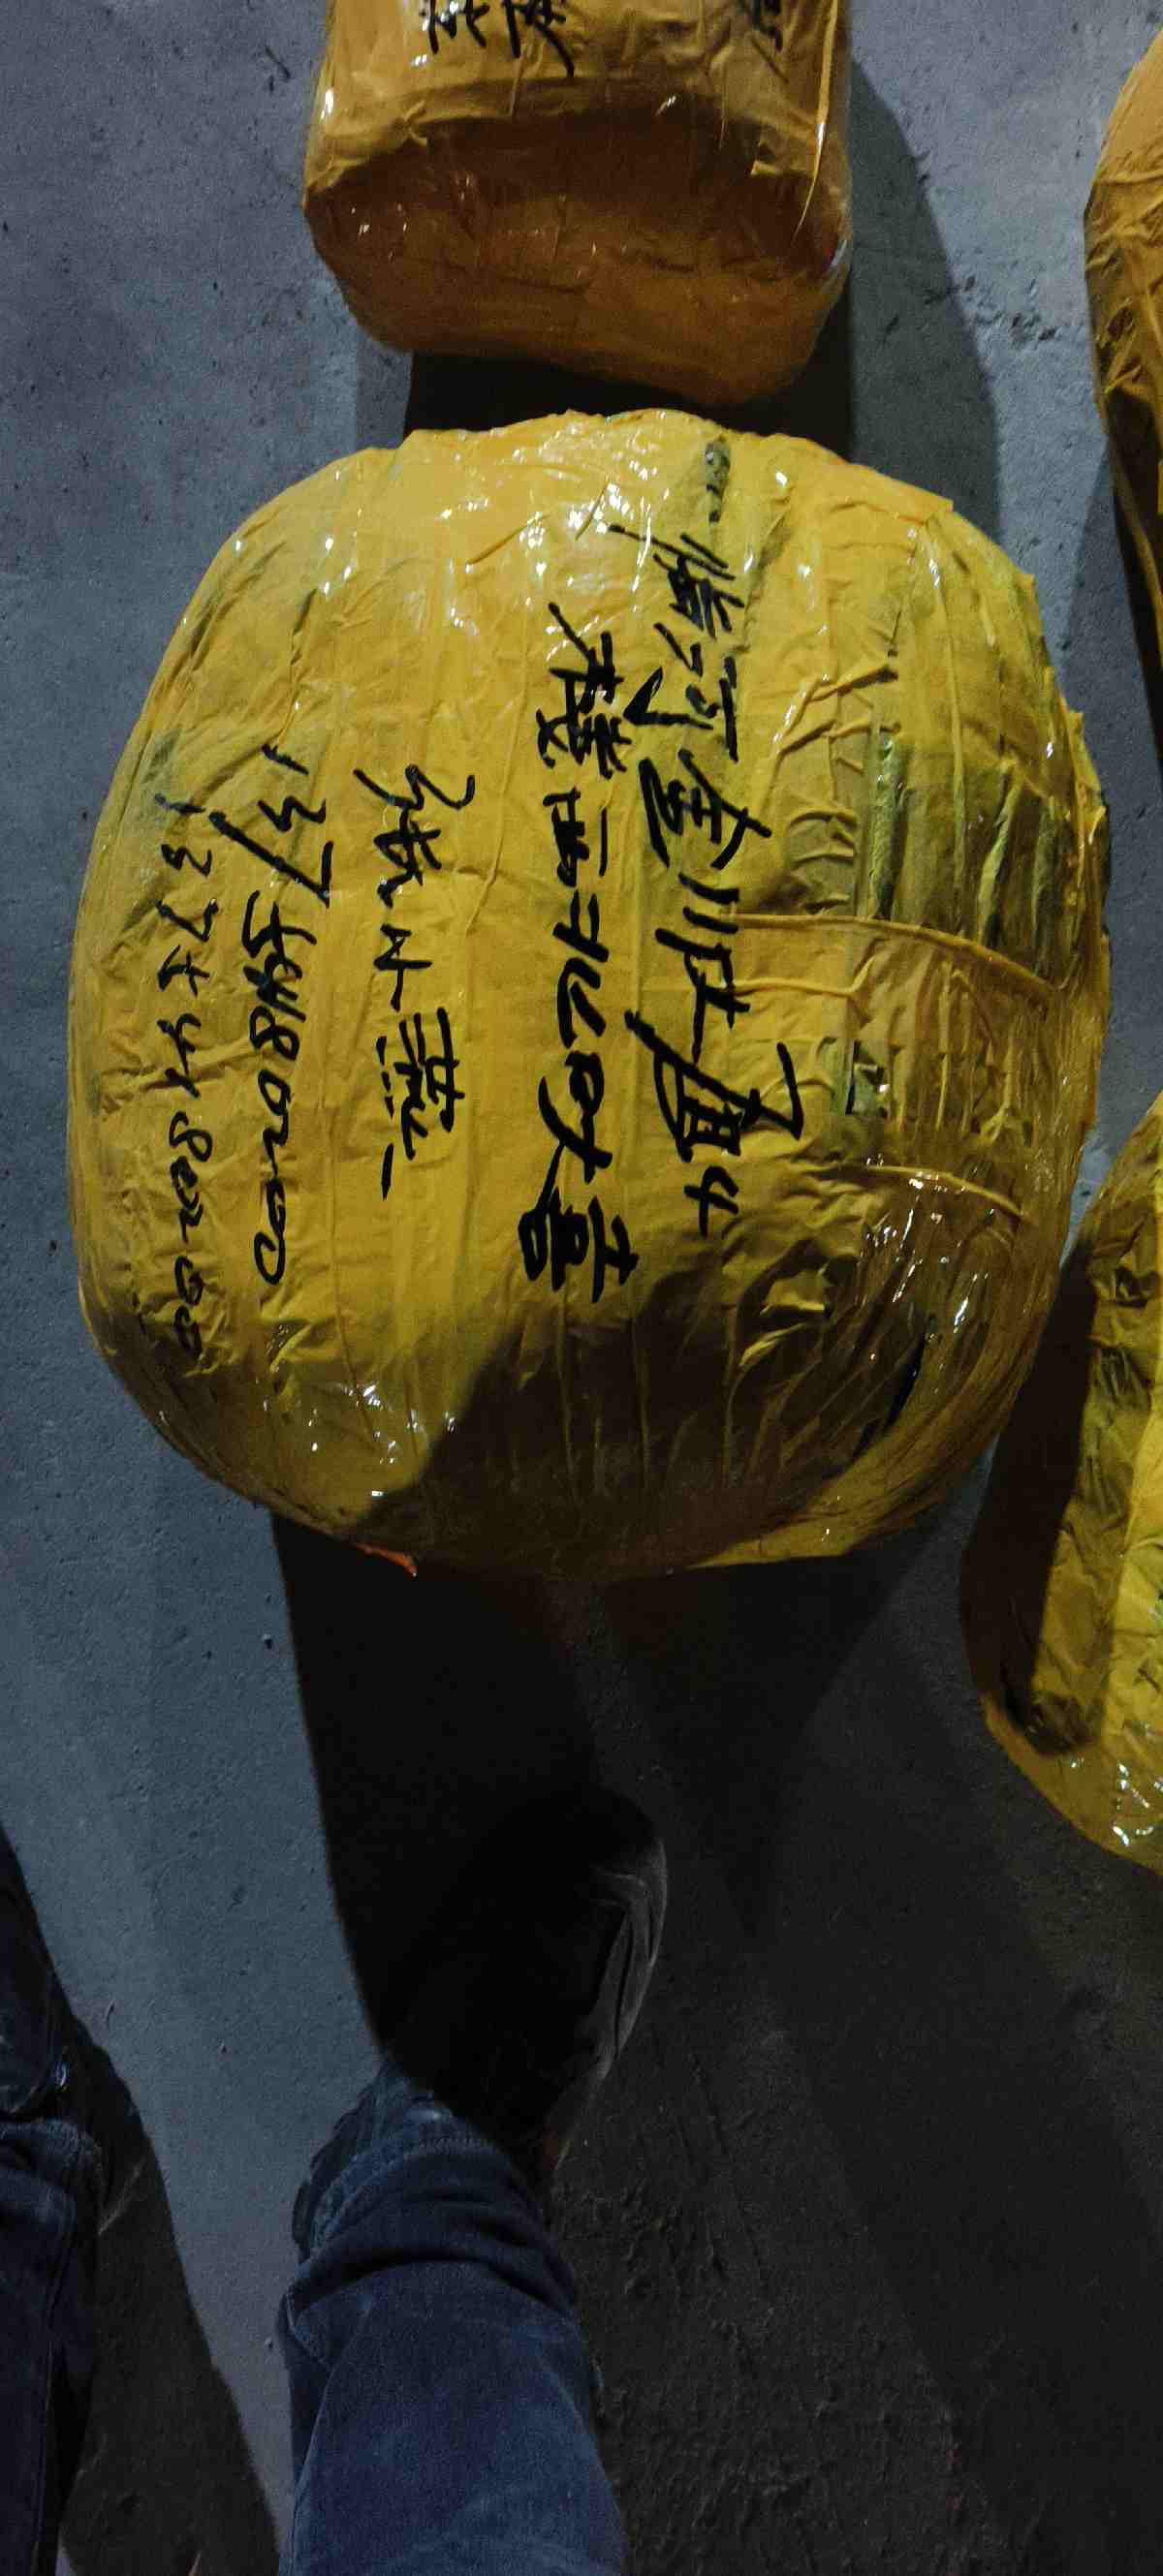 临河金川 厦4
楼西北时喜
张小燕
13754480200
13754480200